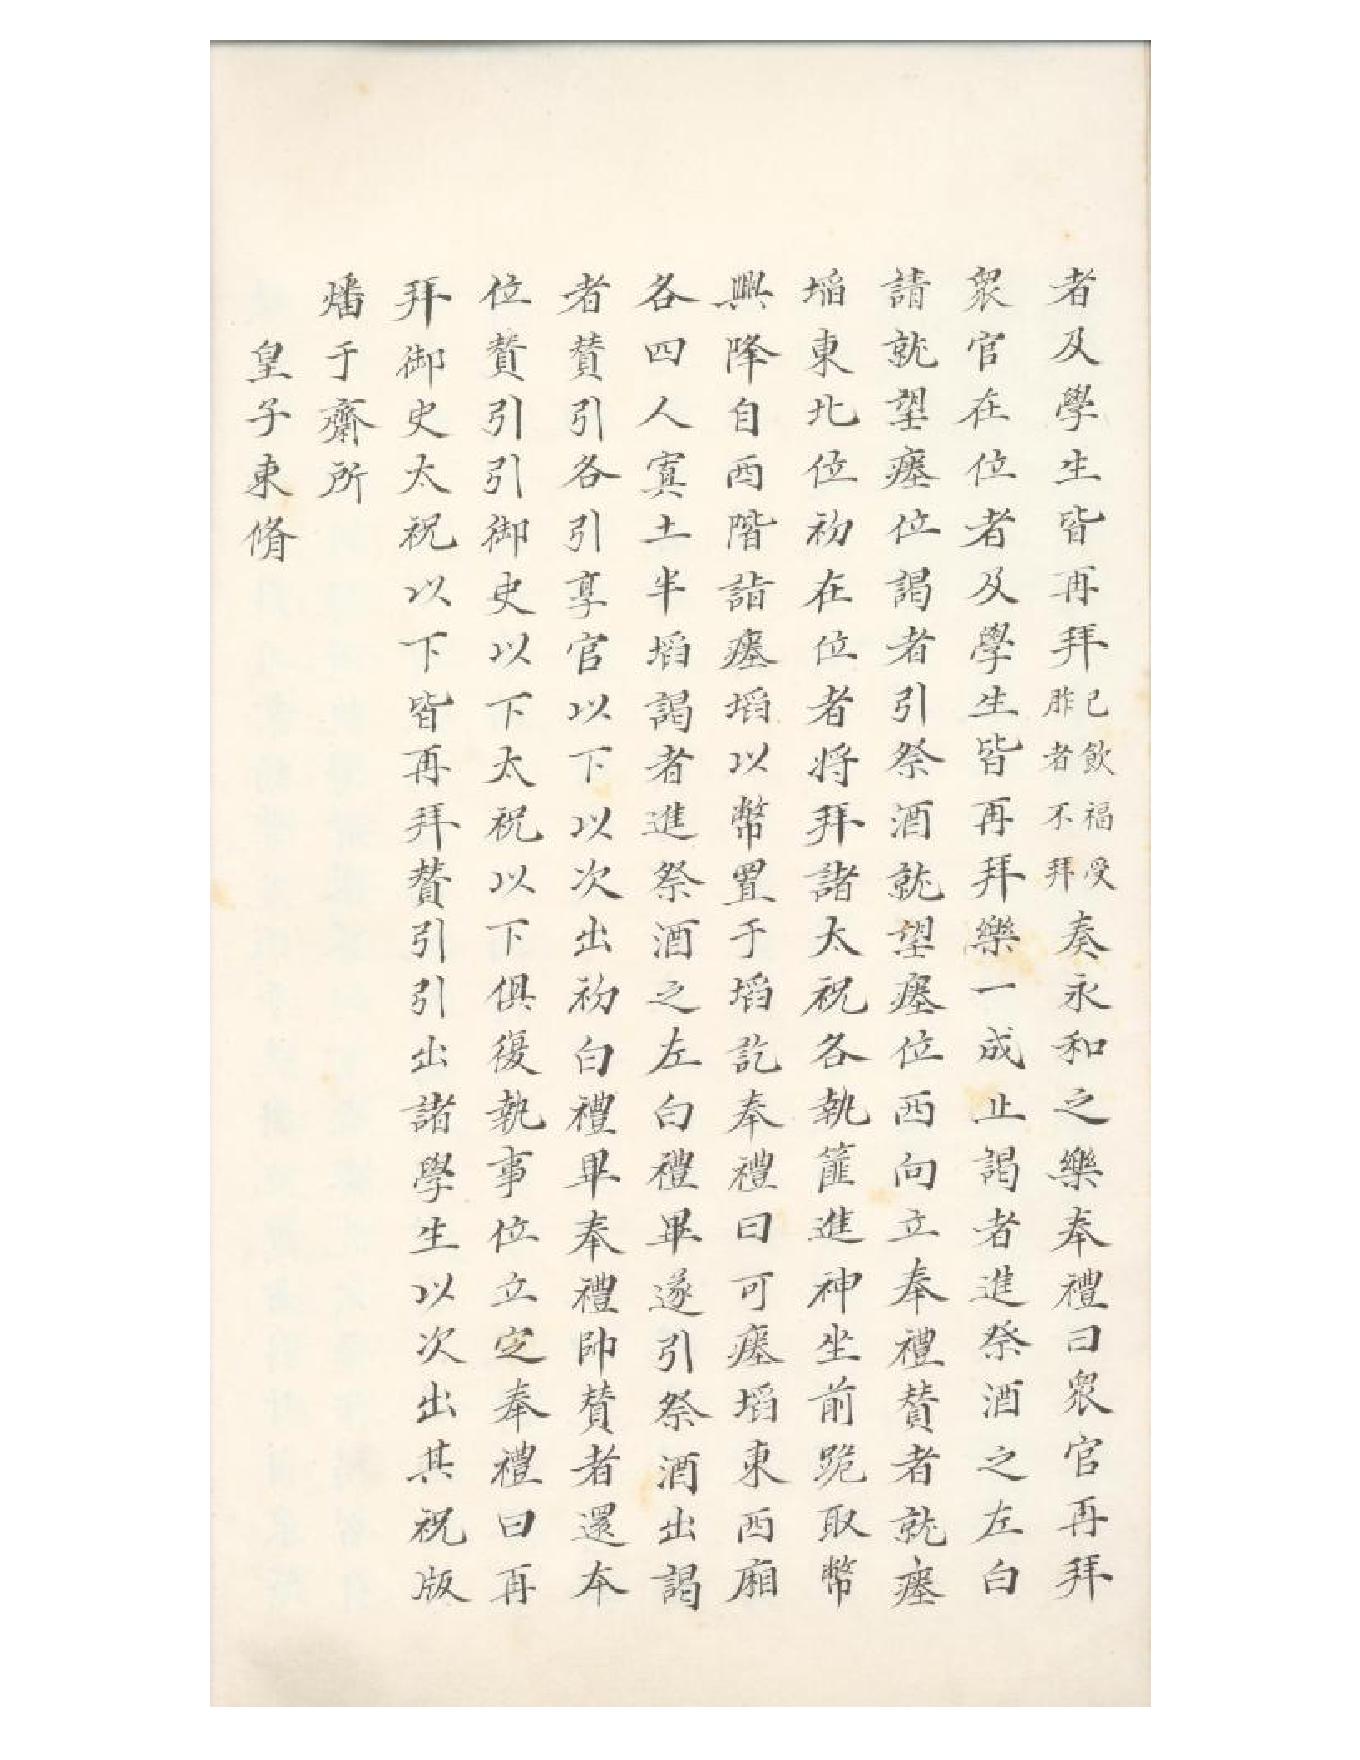 者及學生皆再拜已飲福受胙者不拜奏永和之樂奉禮曰衆官再拜
衆官在位者及學生皆再拜樂一成止謁者進祭酒之左白
請就望瘞位謁者引祭酒就望瘞位西向立奉禮贊者就瘞
埳東北位初在位者將拜諸太祝各執篚進神坐前跪取幣
興降自西階詣瘞埳以幣置于埳訖奉禮曰可瘞埳東西廂
各四人寘土半埳謁者進祭酒之左白禮畢遂引祭酒出謁
者贊引各引享官以下以次出初白禮畢奉禮帥贊者還本
位贊引引御史以下太祝以下俱復執事位立定奉禮曰再
拜御史太祝以下皆再拜贊引引出諸學生以次出其祝版
燔于齋所
皇子束脩